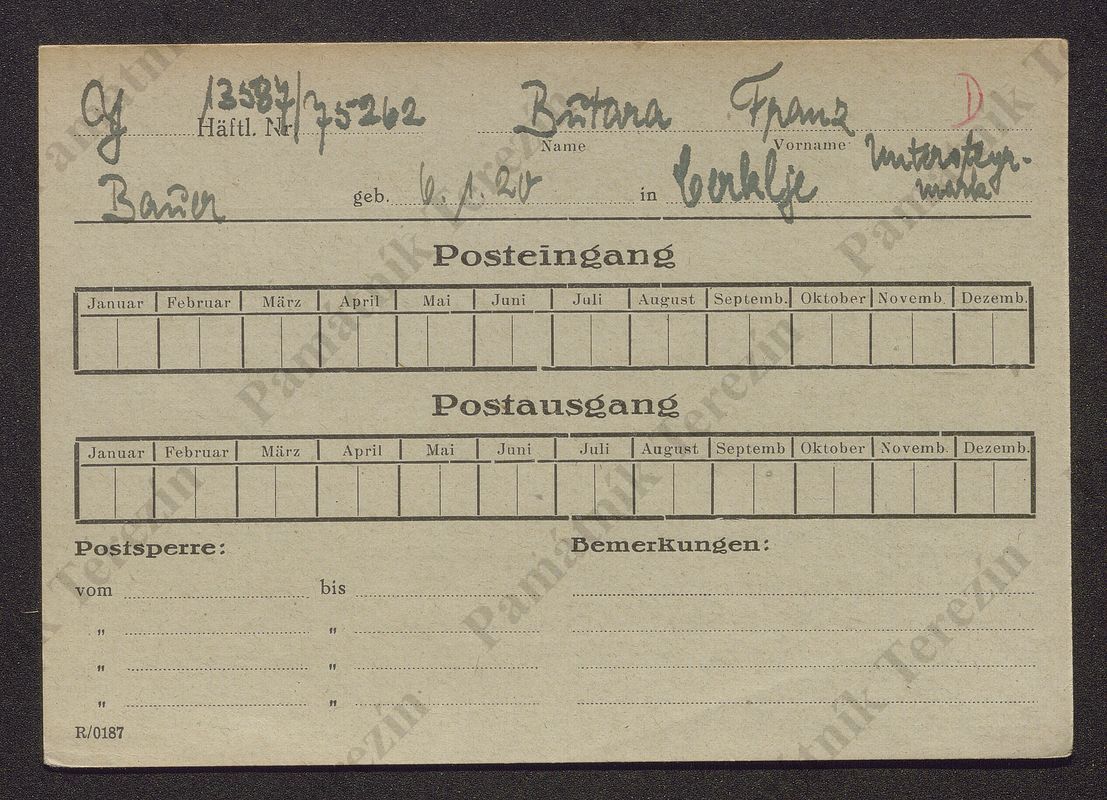 13587/75262 Butara Franz D
Häftl. Nr. Name Vorname
Bauer geb. 6.1.20 in Cerklje Untersteyr-
mark
Posteingang
Januar Februar März April Mai Juni Juli August Septemb. Oktober Novemb. Dezemb.
Postausgang
Januar Februar März April Mai Juni Juli August Septemb Oktober Novemb. Dezemb.
Postsperre: Bemerkungen:
vom bis
" "
" "
" "
R/0187
Památník Terezín